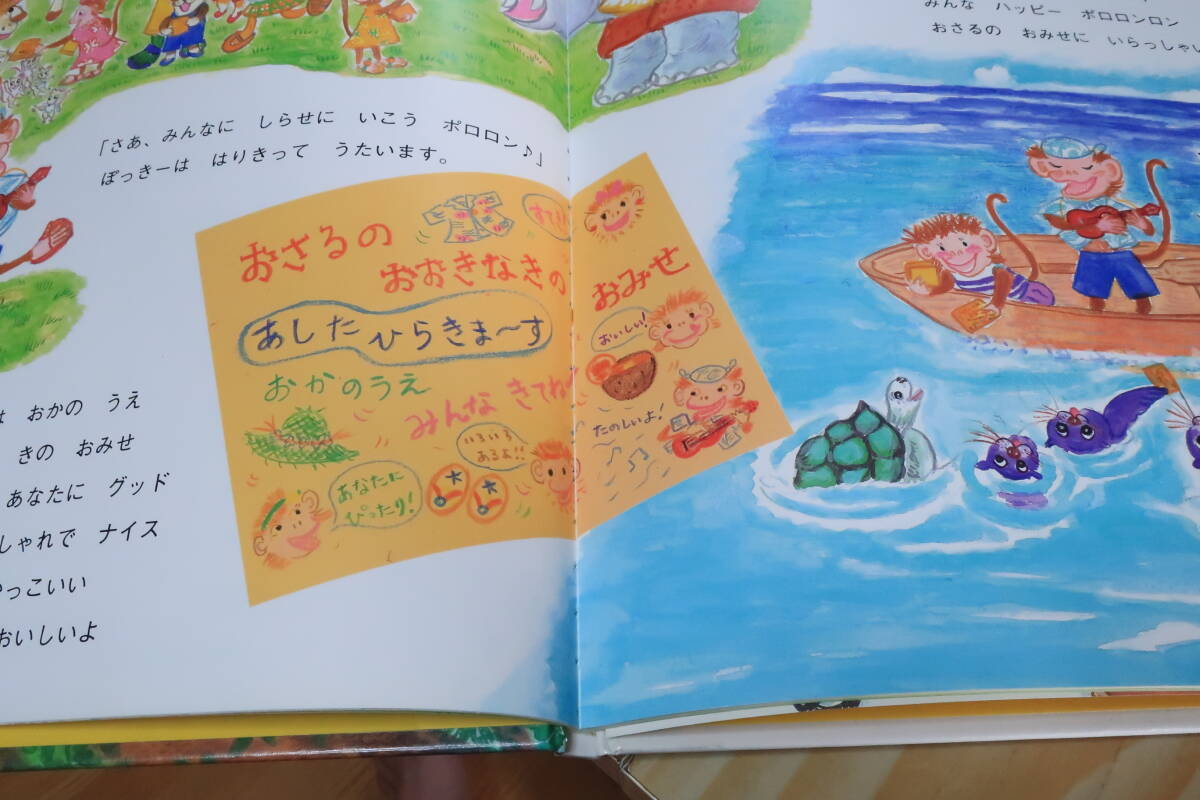 「さあ、みんなに しらせに いこう ポロロン♪」
ぽっきーは はりきって うたいます。
おさるの
おおきなきの
おみせ
あした ひらきま〜す
おかのうえ
みんな きてね
おいしい!
たのしいよ!
いろいろ
あるよ!!
あなたに
ぴったり!
は おかの うえ
きの おみせ
あなたに グッド
しゃれで ナイス
っこいい
おいしいよ
みんな ハッピー ポロロンロン
おさるの おみせに いらっしゃい